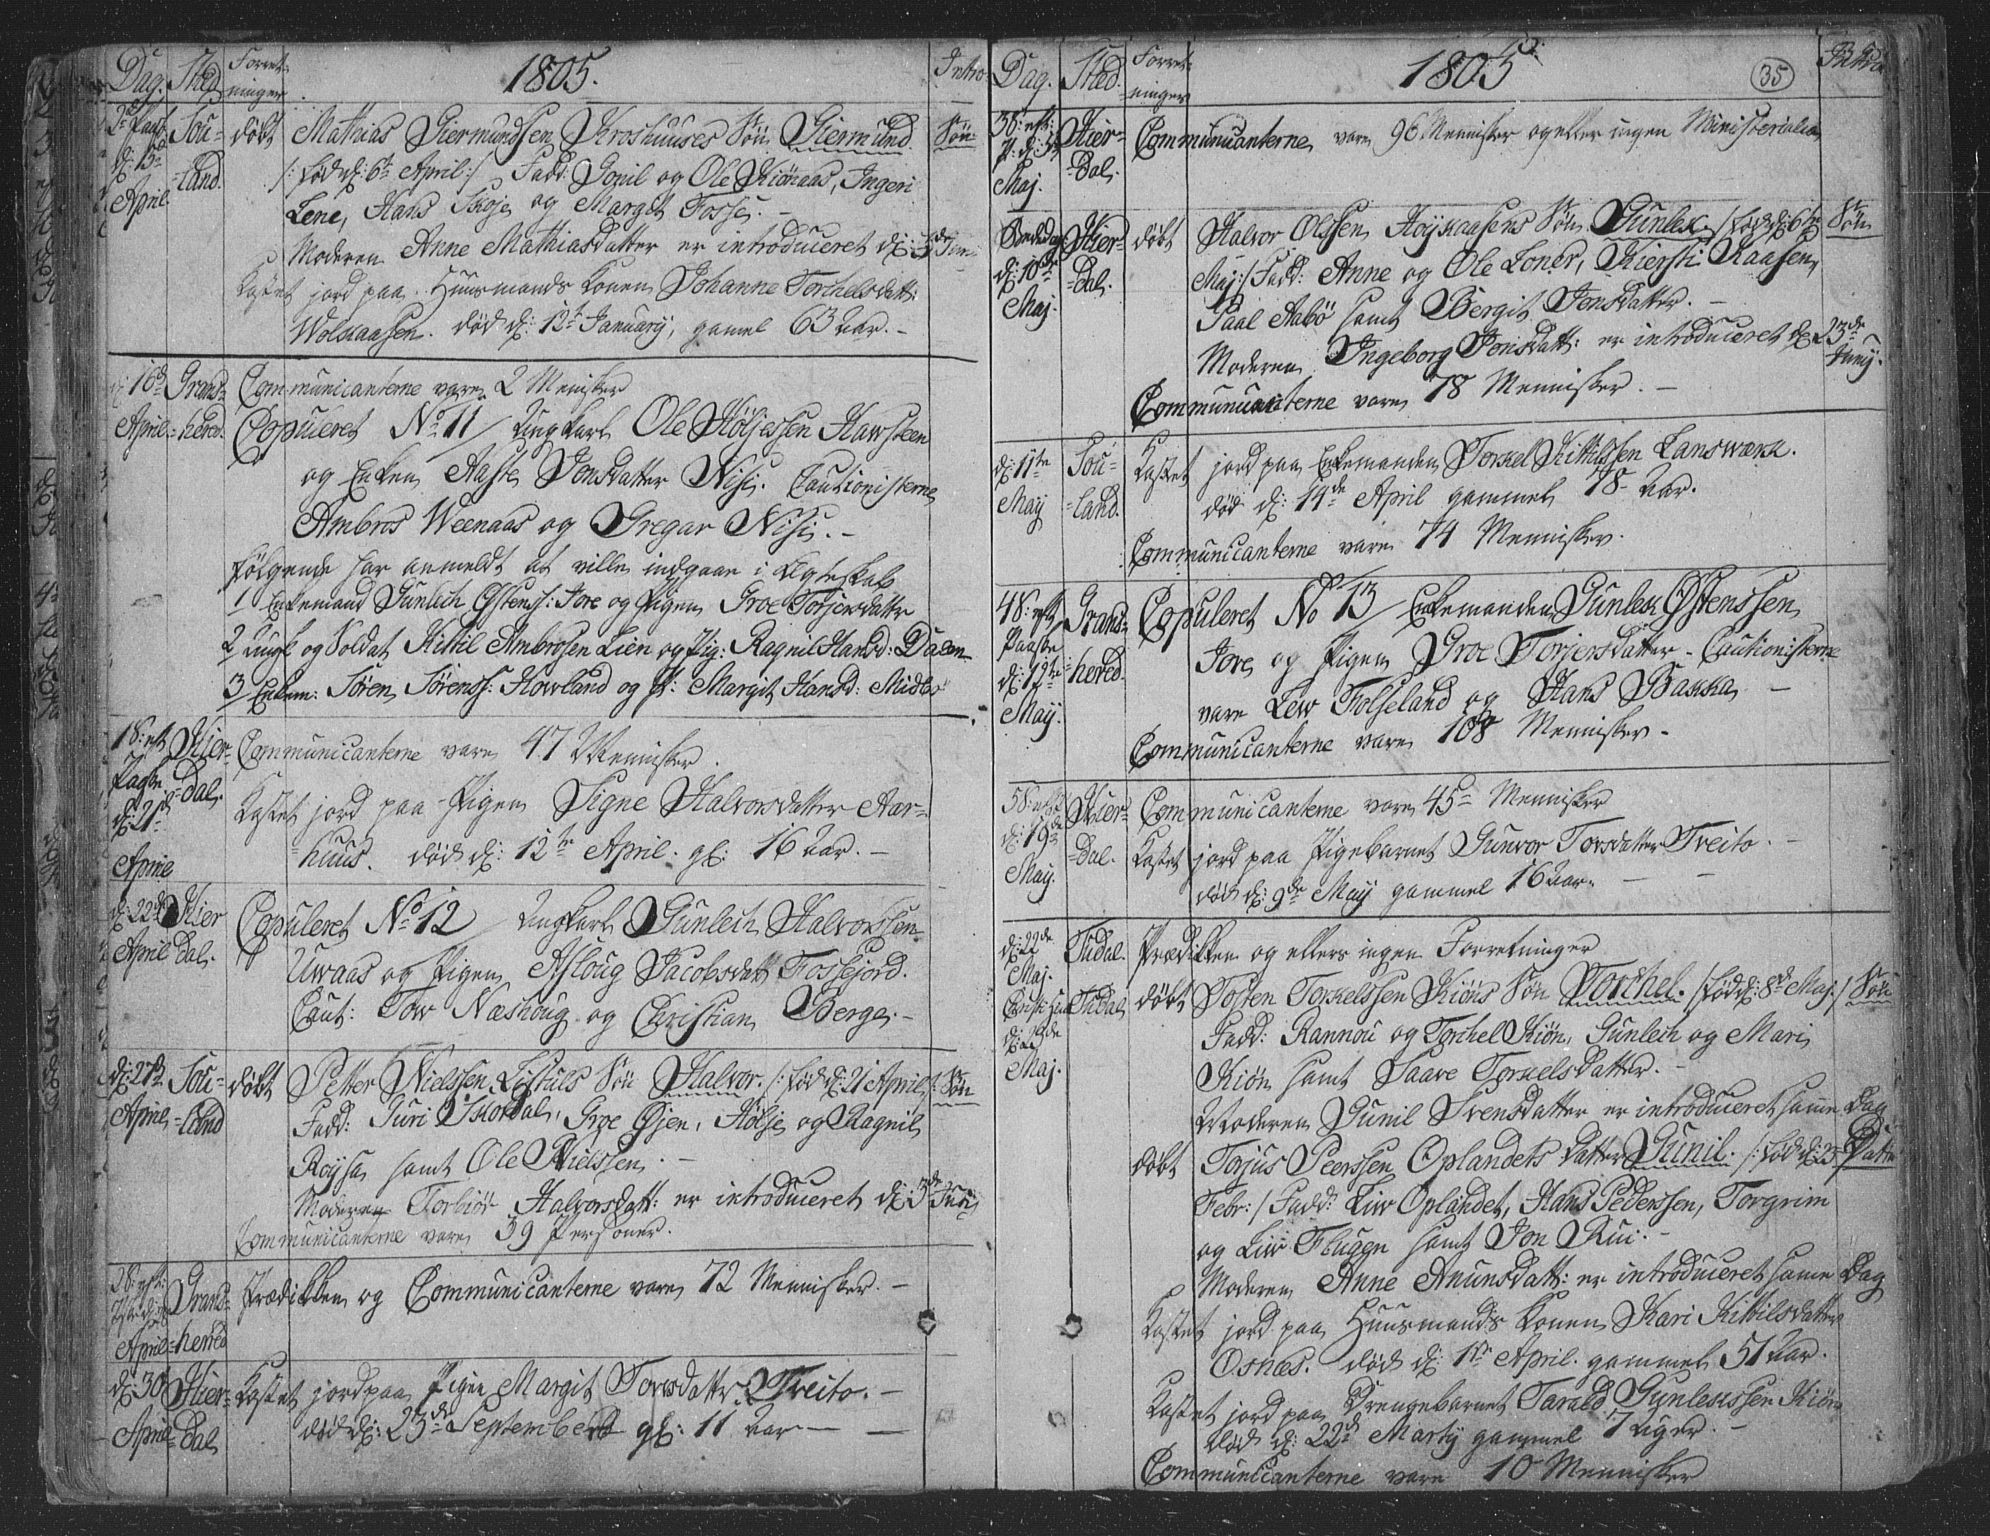 Dag. Sted Forret-ninger 1805. Intro
2den Paaske d: 15de April Sou-land. døbt Mathias Giermundsen Kroshuuses Søn Giermund. Søn
/: fød d: 6te April :/ Fadd: Gonil og Ole Kiønaas, Ingeri
Lene, Hans Skoje og Margit Fosse. -
Moderen Anne Mathiasdatter er introduceret d: 3de Juni
Kastet jord paa Huusmands Konen Johanne Torchelsdatt:
Wolskaasen. død d: 12te January, gamel 63 Aar. -
d: 16de April Grans-hered. Communicanterne vare 2 Menisker
Copuleret No 11 / Ungkarl Ole Høljessen Hawsteen
og Enken Aaste Jonsdatter Nisi. Cautionisterne
Ambros Weenaas og Gregar Nisi. -
Følgende har anmeldt at ville indgaae i Ægteskab
1 Enkemand Gunlech Østenss: Jore og Pigen Groe Torjersdatter
2 Ungk og Soldat Kittil Ambrosen Lien og Pig: Ragnil Hansd: Dalen
3 Enkem: Søren Sørenss: Howland og P: Margit Hansd: Midtbø
18: eft Paaske d: 21de Aprill Hier-dal. Communicanterne vare 47 Menisker.
Kastet jord paa Pigen Signe Halvorsdatter Aar-
huus. død d: 12te April. gl: 16 Aar. -
d: 22de April Hier dal. Copuleret No 12 / Ungkarl Gunlech Halvorssen
Uwaas og Pigen Asloug Jacobsdatt Fossejord.
Caut: Tow Næshoug og Christian Berge. -
d: 27de April Sou-land døbt Petter Nielssen Listuls Søn Halvor. /: fød d: 21 April :/ Søn
Fadd: Guri Skordal, Groe Øjen, Hølje og Ragnil
Roysa samt Ole Nielssen. -
Moderen Torbiør Halvorsdatt: er introduceret d: 3de Juni
Communicanterne vare 39 Personer.
28: April Grans-herred Prædikken og Communicanterne vare 72 Mennisker. -
d: 30 April Hier-dal Kastet jord paa Pigen Margit Torsdatter Treito. -
død d: 23de September gl: 11 Aar -
Dag. Sted. Forret-ninger 1805. 35 Intro
38: eft: P. d: 5te Maj. Hier-dal. Communicanterne vare 96 Mennisker og eller ingen Ministerialia
Bededag d: 10de Maj. Hier-dal. døbt Halvor Olssen Høykaasens Søn Gunlek. / fød d: 6te Søn
Maj:/ Fadd: Anne og Ole Loner, Kiersti Kaasen,
Paal Aabø samt Bergit Jonsdatter. -
Moderen Ingeborg Jonsdatt: er introduceret d: 23de Junij.
Communicanterne vare 78 Mennisker. -
d: 11te May Sou-land. Kastet jord paa Enkemanden Torkel Kittilssen Lanswærk.
død d: 14de April gammel 78 Aar.
Communicanterne vare 74 Mennisker.
48: eft Paaske d: 12te May. Grans-hered. Copuleret No 13 / Enkemanden Gunlek Østenssen
Jore og Pigen Groe Torjersdatter - Cautionisterne
vare Lew Folseland og Hans Bakka -
Communicanterne vare 108 Mennisker -
58: eft d: 19de May. Hier-dal. Communicanterne vare 45 Mennisker
Kastet jord paa Pigebarnet Gunvor Torsdatter Treito. -
død d: 9de May gammel 16 Aar. -
d: 22de Maj. Tudal. Prædikken og ellers ingen Forretninger
d: 23de Maj. Tudal døbt Tosten Torkelssen Kiøns Søn Torchel. / fød d: 8de Maj:/ Søn
Fadd: Rannou og Torchel Kiøn, Gunlech og Mari
Kiøn samt Saave Torkelsdatter. -
Moderen Gunil Svensdatter er introduceret samme Dag
døbt Torjus Peerssen Oplandets datter Gunil. /: fød d: 23 Datter
Febr:/ Fadd: Liw Oplandet, Hans Pederssen, Torgrim
og Liw Flugon samt Jon Rui. -
Moderen Anne Anunsdatt: er introduceret same Dag
Kastet jord paa Huusmands Konen Kari Kittilsdatter
Osnes. død d: 1te April. gammel 51 Aar.
Kastet jord paa Drengebarnet Tarald Gunlekssen Kiøn
død d: 22de Martij gammel 7 Uger. -
Communicanterne vare 10 Mennisker